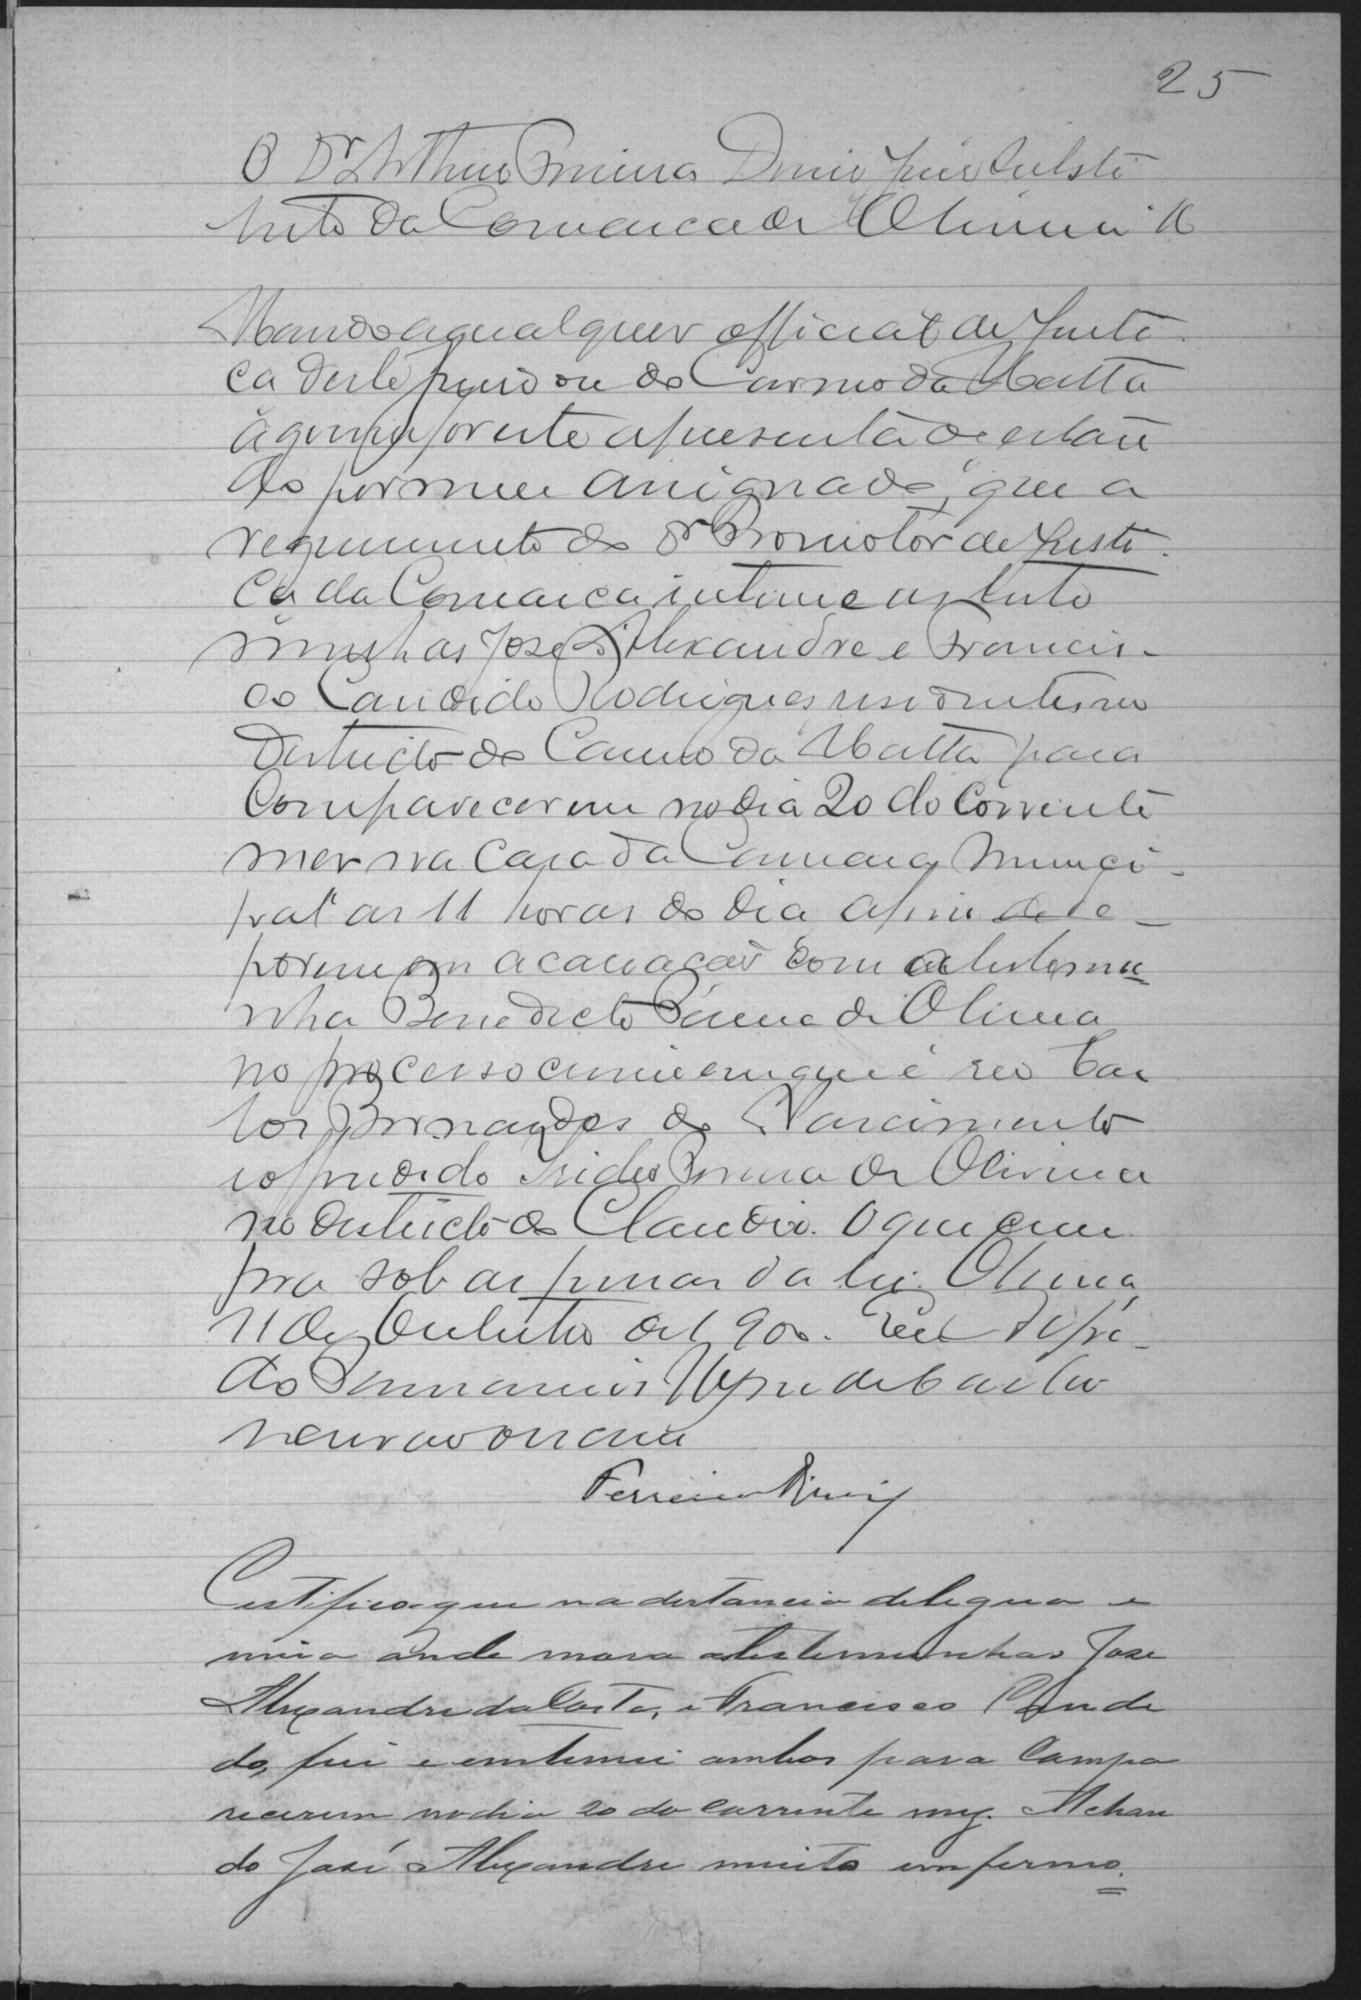 25
O Dr Arthur Ferreira Diniz Juiz Substi
tuto da Comarca de Oliveira &
Mando a qualquer official de Justi
ça deste Juizo ou do Carmo da Matta
á quem for este apresentado estan
do por mim assignado, que a
requerimento do Dr Promotor de Justi
ça da Comarca intime as teste
munhas José Alexandre e Francis-
co Candido Rodrigues residentes no
Districto do Carmo da Matta para
comparecerem no dia 20 do corrente
mez na Casa da Camara Munici-
pal as 11 horas do dia afim de de-
porem em acariação com a testemu
nha Benedicto de Oliveira
no processo crime em que é reo Car
los Bernardes do Nascimento
e offendido Isidro Pereira de Oliveira
no districto do Claudio. O que cum
pra sob as penas da lei. Oliveira,
11 de Outubro de 1900. Eu
escrivão o escrevi
Ferreira Diniz
Certifico que na distancia de legua e
meia onde mora as testemunhas José
Alexandre da Costa, e Francisco Cande
do, fui e entimei ambos para Compa
recerem no dia 20 do corrente mez. Achan
do José Alexandre muito emfermo.